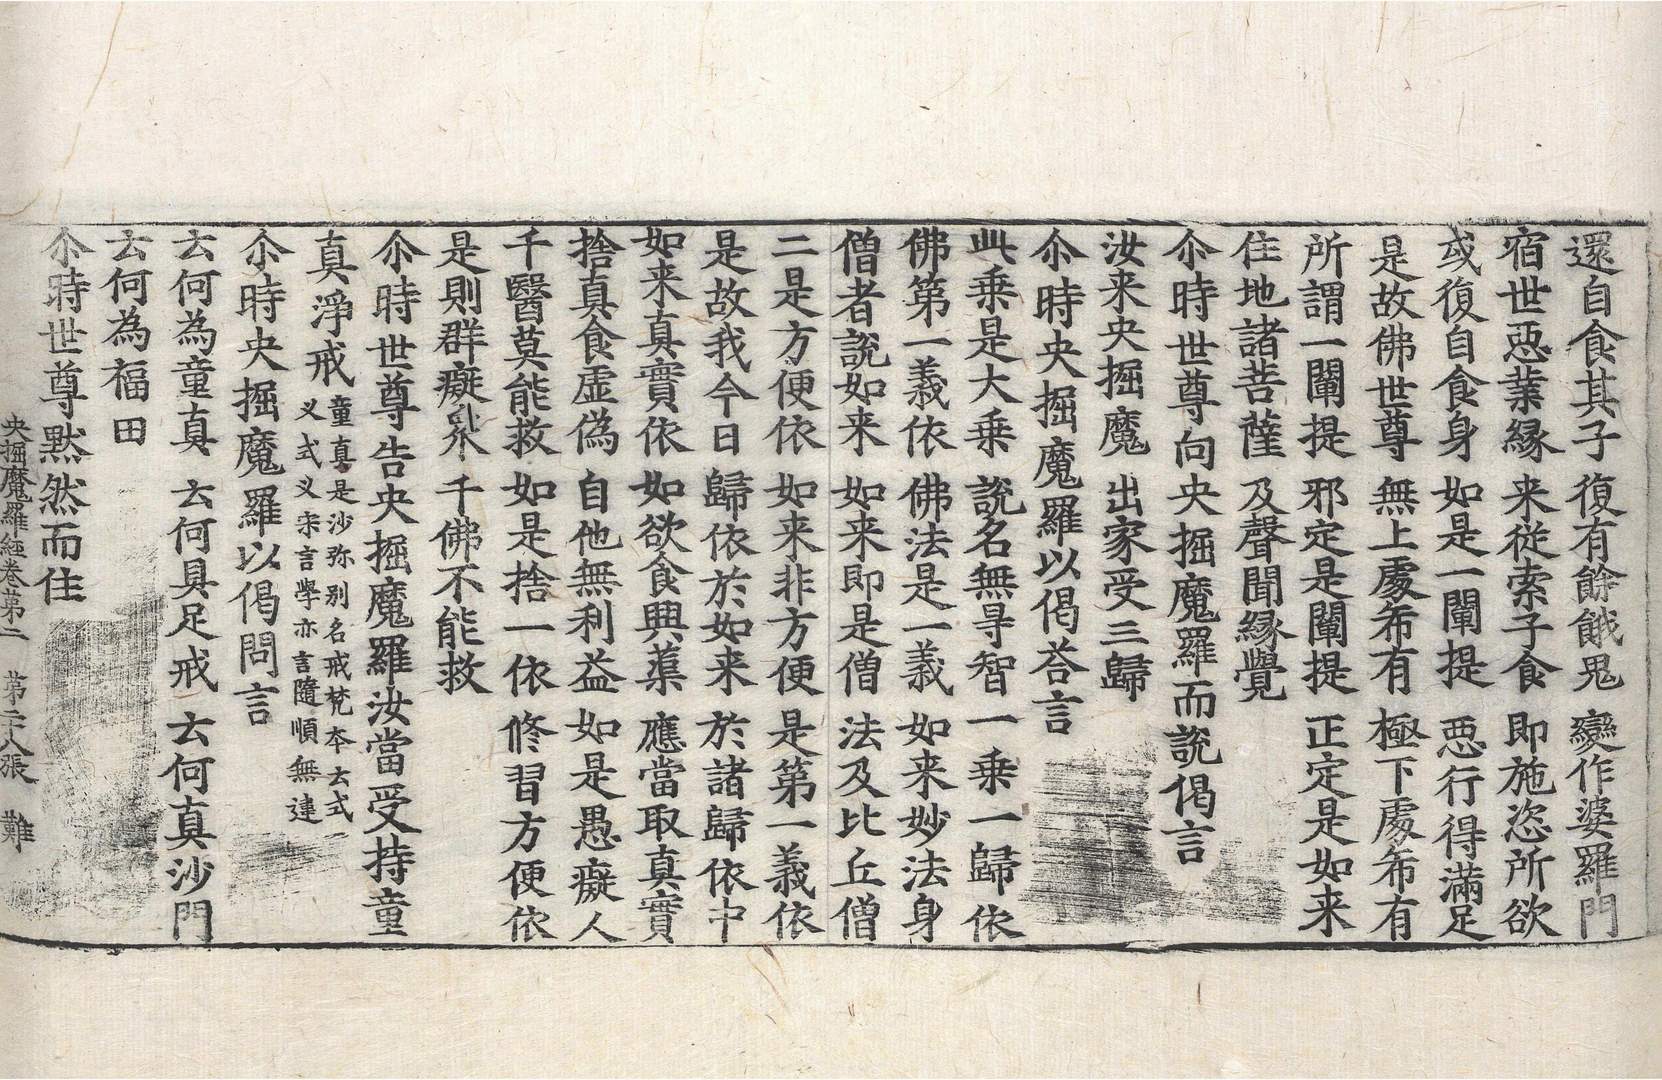 還自食其子 復有餘餓鬼 變作婆羅門
宿世惡業緣 来從索子食 即施恣所欲
或復自食身 如是一闡提 惡行得滿足
是故佛世尊 無上處希有 極下處希有
所謂一闡提 邪定是闡提 正定是如来
住地諸菩薩 及聲聞緣覺
尒時世尊向央掘魔羅而說偈言
汝来央掘魔 出家受三歸
尒時央掘魔羅以偈荅言
此乗是大乗 說名無㝵智 一乗一歸依
佛第一義依 佛法是一義 如来妙法身
僧者說如来 如来即是僧 法及比丘僧
二是方便依 如来非方便 是第一義依
是故我今日 歸依於如来 於諸歸依中
如来真實依 如欲食興蕖 應當取真實
捨真食虛偽 自他無利益 如是愚癡人
千醫莫能救 如是捨一依 修習方便依
是則群癡 千佛不能救
尒時世尊告央掘魔羅汝當受持童
真淨戒 童真是沙弥別名戒梵夲云式
义式义宋言學亦言隨順無違
尒時央掘魔羅以偈問言
云何為童真 云何具足戒 云何真沙門
云何為福田
尒時世尊黙然而住
央掘魔羅經卷第二 第二十八張 難